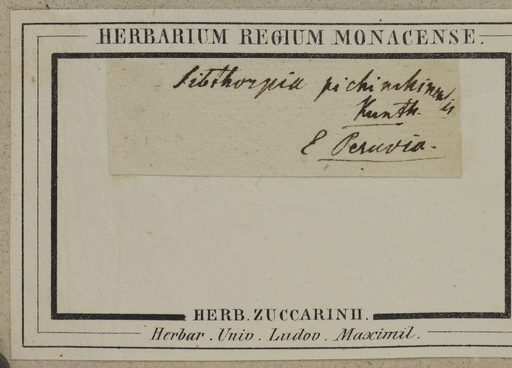 HERBARIUM REGIUM MONACENSE.
Sibthorpia pichinchensis
Kunth.
E Peruvia.
HERB. ZUCCARINII.
Herbar. Univ. Ludov. Maximil.